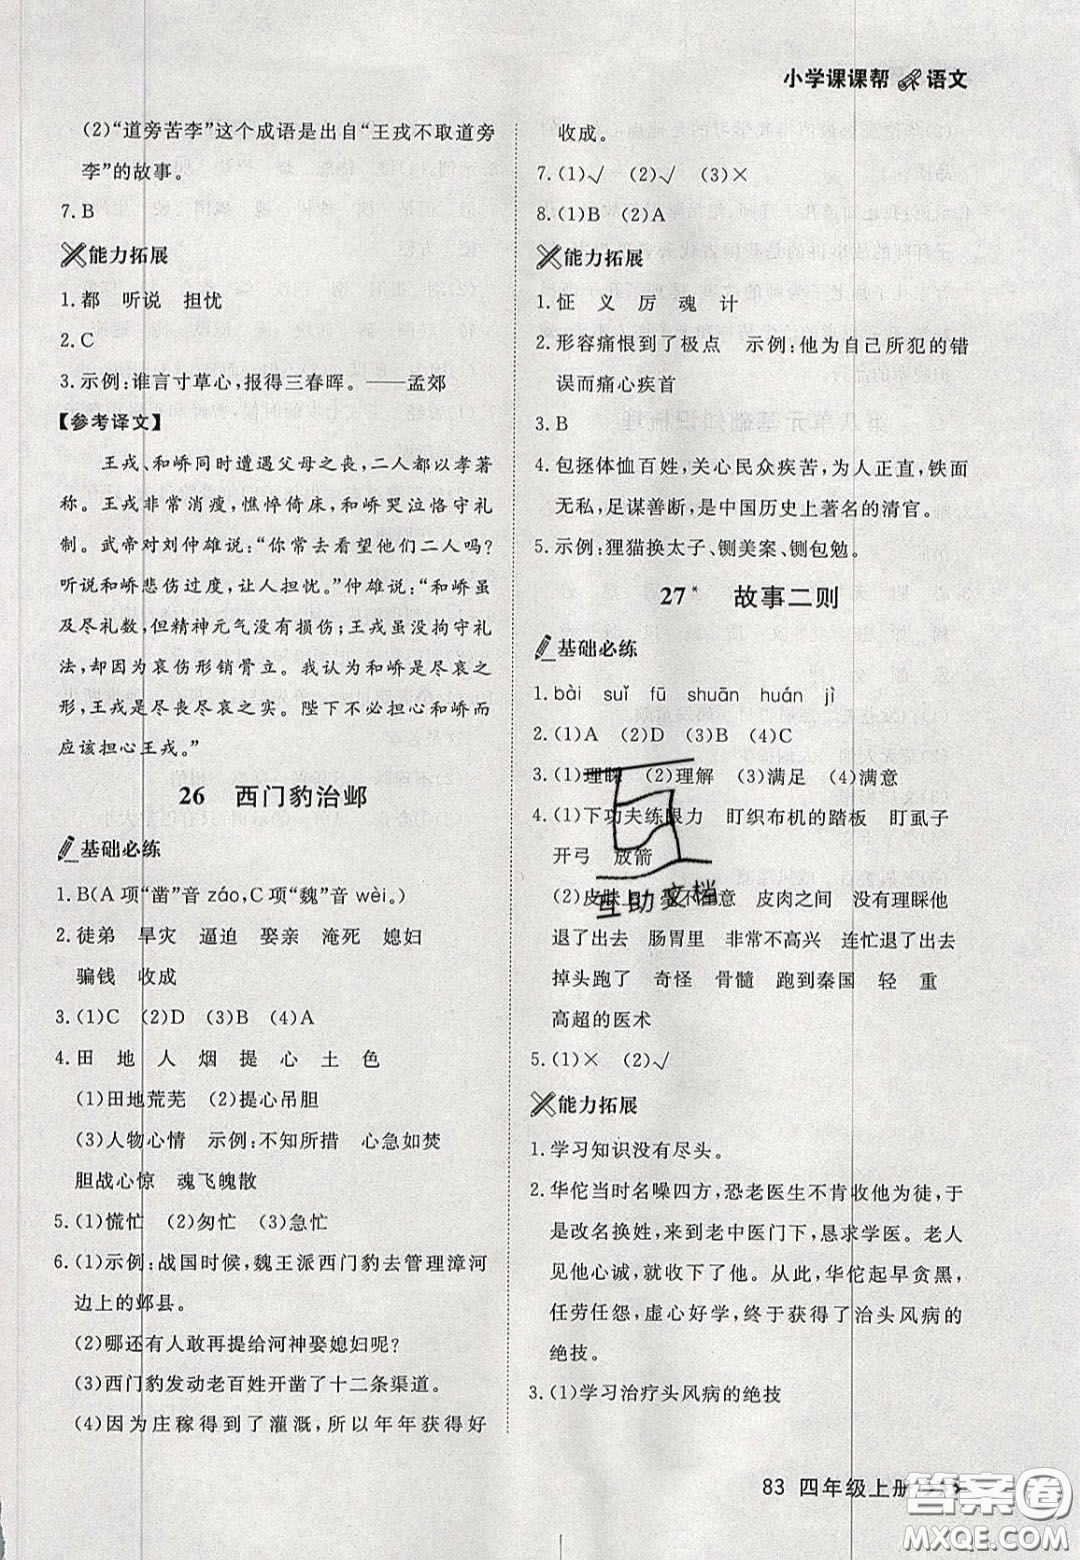 小学课课帮 语文
(2)“道旁苦李”这个成语是出自“王戎不取道旁
李”的故事。
7. B
能力拓展
1. 都 听说 担忧
2. C
3. 示例:谁言寸草心,报得三春晖。——孟郊
【参考译文】
王戎、和峤同时遭遇父母之丧,二人都以孝著
称。王戎非常消瘦,憔悴倚床,和峤哭泣恪守礼
制。武帝对刘仲雄说:“你常去看望他们二人吗?
听说和峤悲伤过度,让人担忧。”仲雄说:“和峤虽
及尽礼数,但精神元气没有损伤;王戎虽没拘守礼
法,却因为哀伤形销骨立。我认为和峤是尽哀之
形,王戎是尽丧尽哀之实。陛下不必担心和峤而
应该担心王戎。”
26 西门豹治邺
基础必练
1. B(A 项“凿”音 záo,C 项“魏”音 wèi。)
2. 徒弟 旱灾 逼迫 娶亲 淹死 媳妇
骗钱 收成
3. (1)C (2)D (3)B (4)A
4. 田 地 人 烟 提 心 土 色
(1)田地荒芜 (2)提心吊胆
(3)人物心情 示例:不知所措 心急如焚
胆战心惊 魂飞魄散
5. (1)慌忙 (2)匆忙 (3)急忙
6. (1)示例:战国时候,魏王派西门豹去管理漳河
边上的邺县。
(2)哪还有人敢再提给河神娶媳妇呢?
(3)西门豹发动老百姓开凿了十二条渠道。
(4)因为庄稼得到了灌溉,所以年年获得好
收成。
7. (1)√ (2)√ (3)×
8. (1)B (2)A
能力拓展
1. 怔 义 厉 魂 计
2. 形容痛恨到了极点 示例:他为自己所犯的错
误而痛心疾首
3. B
4. 包拯体恤百姓,关心民众疾苦,为人正直,铁面
无私,足谋善断,是中国历史上著名的清官。
5. 示例:狸猫换太子、铡美案、铡包勉。
27* 故事二则
基础必练
1. bài suǐ fū shuān huán jì
2. (1)A (2)D (3)B (4)C
3. (1)理睬 (2)理解 (3)满足 (4)满意
4. (1)下功夫练眼力 盯织布机的踏板 盯虱子
开弓 放箭
(2)皮肤上 毫不在意 皮肉之间 没有理睬他
退了出去 肠胃里 非常不高兴 连忙退了出去
掉头跑了 奇怪 骨髓 跑到秦国 轻 重
高超的医术
5. (1)× (2)√
能力拓展
1. 学习知识没有尽头。
2. 华佗当时名噪四方,恐老医生不肯收他为徒,于
是改名换姓,来到老中医门下,恳求学医。老人
见他心诚,就收下了他。从此,华佗起早贪黑,
任劳任怨,虚心好学,终于获得了治头风病的绝
技。
3. (1)学习治疗头风病的绝技
互助文档
83 四年级上册
答案圈
MXQE.COM